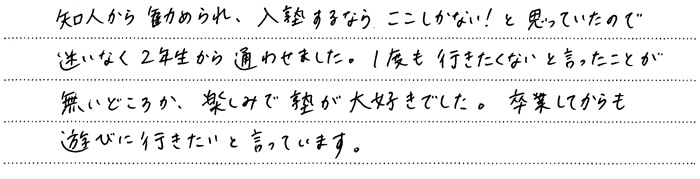 知人から勧められ、入塾するなら ここしかない！と思っていたので
迷いなく2年生から通わせました。1度も行きたくないと言ったことが
無いどころか、楽しみで塾が大好きでした。卒業してからも
遊びに行きたいと言っています。